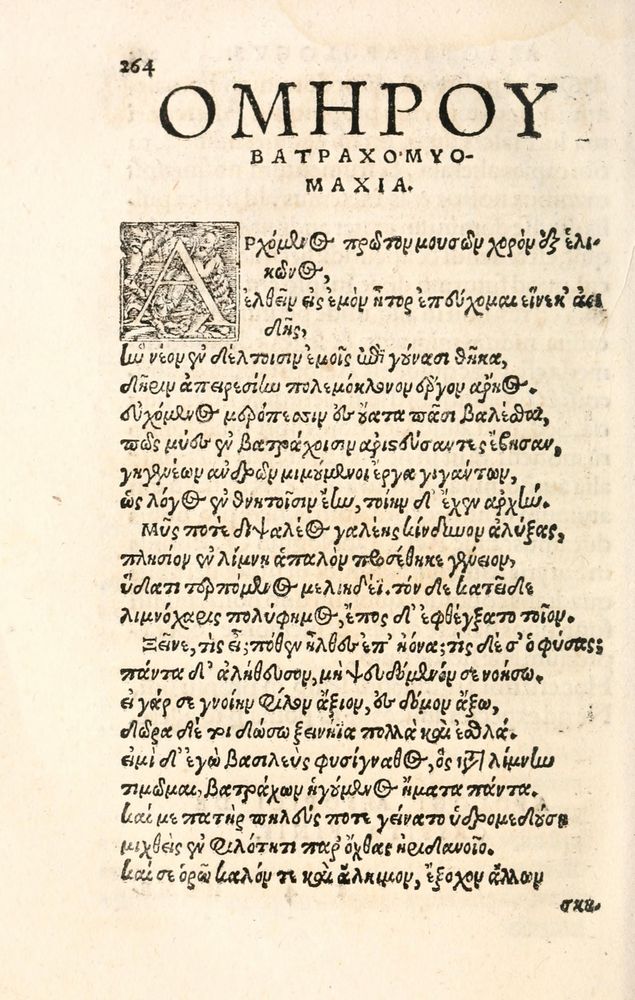 264
ΟΜΗΡΟΥ
ΒΑΤΡΑΧΟΜΥΟ-
ΜΑΧΙΑ.
ΑΡχόμενος πρῶτον μουσῶν χορὸν ἐξ ἑλι-
κῶνος,
ἐλθεῖν εἰς ἐμὸν ἦτορ ἐπεύχομαι εἵνεκ' ἀοι
δῆς,
ἣν νέον ἐν δέλτοισιν ἐμοῖς ἐπὶ γούνασι θῆκα,
δῆριν ἀπειρεσίην πολεμόκλονον ἔργον ἄρηος.
εὐχόμενος μερόπεσσιν ἐς οὔατα πᾶσι βαλέσθαι,
πῶς μύες ἐν βατράχοισιν ἀριστεύσαντες ἔβησαν,
γηγενέων ἀνδρῶν μιμούμενοι ἔργα γιγάντων,
ὡς λόγος ἐν θνητοῖσιν ἔην, τοίην δ' ἔχεν ἀρχήν.
Μῦς ποτε διψαλέος γαλέης κίνδυνον ἀλύξας,
πλησίον ἐν λίμνῃ ἁπαλὸν προσέθηκε γένειον,
ὕδατι τερπόμενος μελιηδέϊ. τὸν δὲ κατεῖδε
λιμνόχαρις πολύφημος, ἔπος δ' ἐφθέγξατο τοῖον.
Ξεῖνε, τίς εἶ; πόθεν ἦλθες ἐπ' ἠόνα; τίς δέ σ' ὁ φύσας;
πάντα δ' ἀλήθευσον, μὴ ψευδόμενόν σε νοήσω.
εἰ γάρ σε γνοίην φίλον ἄξιον, ἐς δόμον ἄξω,
δῶρα δέ τοι δώσω ξεινήϊα πολλὰ καὶ ἐσθλά.
εἰμὶ δ' ἐγὼ βασιλεὺς φυσίγναθος, ὃς κατὰ λίμνην
τιμῶμαι, βατράχων ἡγούμενος ἤματα πάντα.
καί με πατὴρ πηλεύς ποτε γείνατο ὑδρομεδούσῃ
μιχθεὶς ἐν φιλότητι παρ' ὄχθας ἠριδανοῖο.
καί σε ὁρῶ καλόν τε καὶ ἄλκιμον, ἔξοχον ἄλλων
σκη.